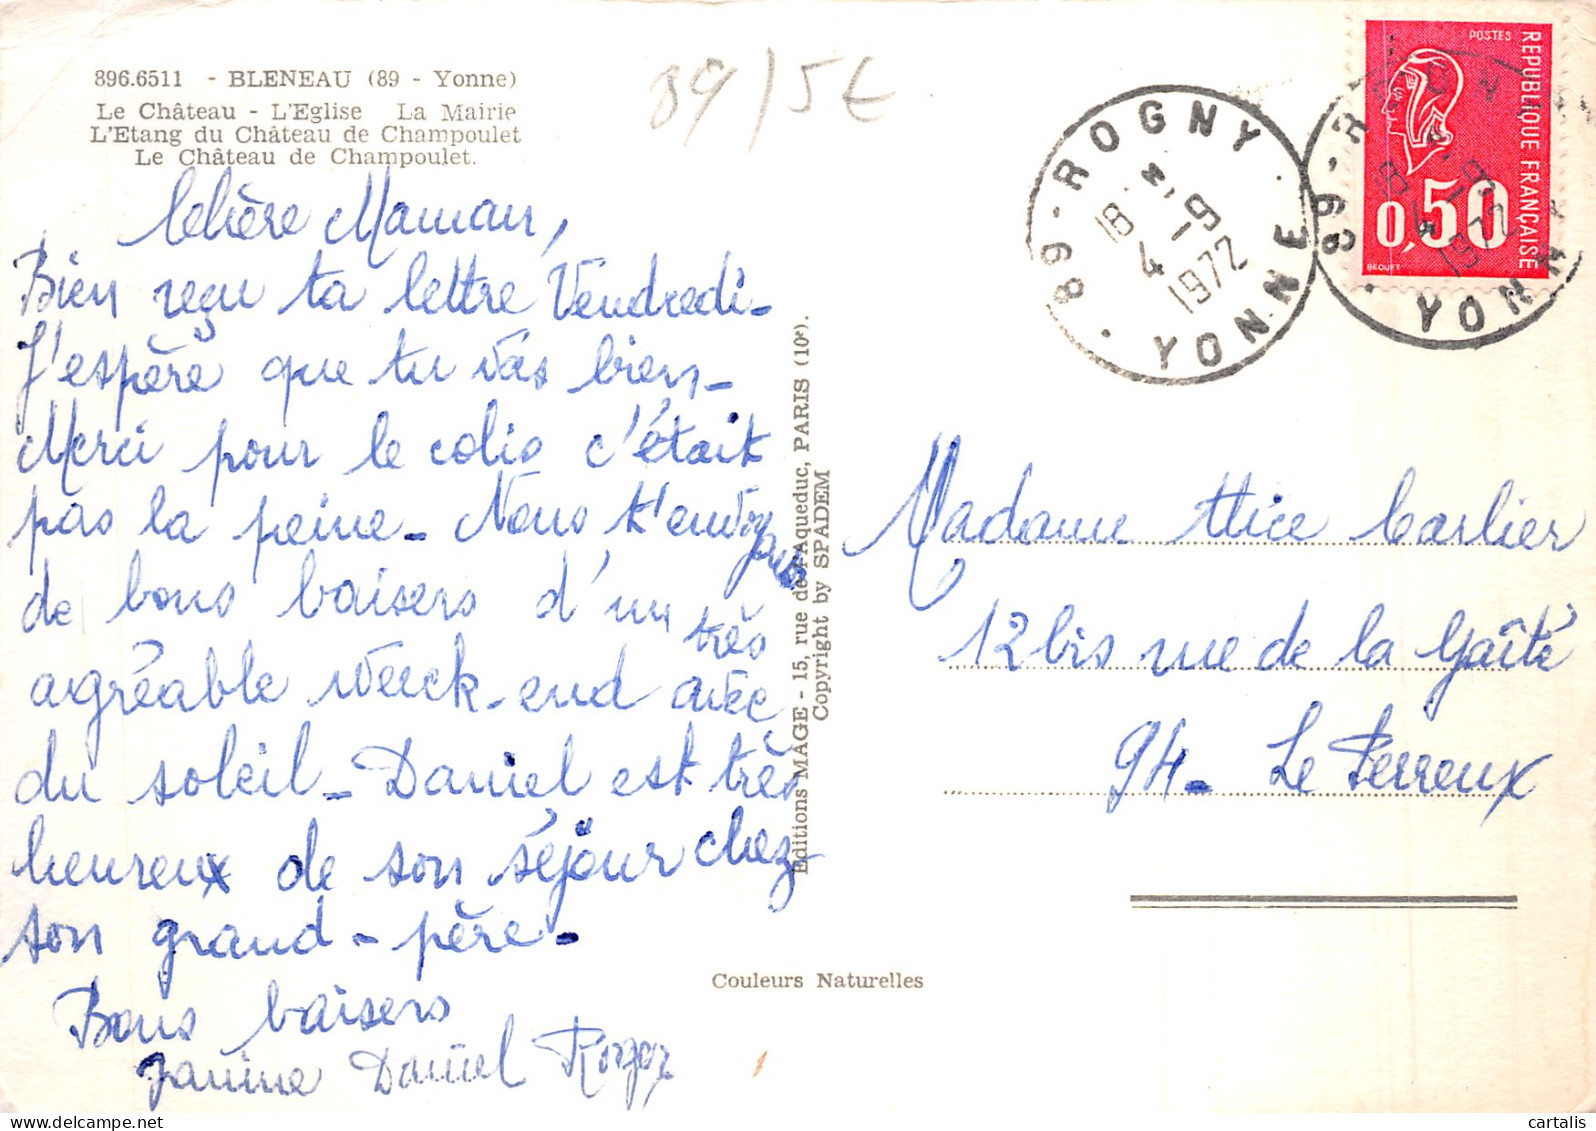 896.6511 - BLENEAU (89 - Yonne)
Le Château - L'Eglise La Mairie
L'Etang du Château de Champoulet
Le Château de Champoulet.
89/5€
Chère Maman,
Bien reçu ta lettre Vendredi-
J'espère que tu vas bien-
Merci pour le colis c'était
pas la peine- Nous t'envoyons
de bons baisers d'un très
agréable week-end avec
du soleil- Daniel est très
heureux de son séjour chez
son grand-père-
Bons baisers
Janine Daniel
Editions MAGE - 15, rue de l'Aqueduc, PARIS (10e).
Copyright by SPADEM
Couleurs Naturelles
89-ROGNY
18-4
1972
YONNE
POSTES
REPUBLIQUE FRANÇAISE
0,50
BEQUET
89-ROGNY
18
4
1972
YONNE
Madame Alice Carlier
12 bis rue de la Gaîté
94- Le Perreux
cartalis
www.delcampe.net